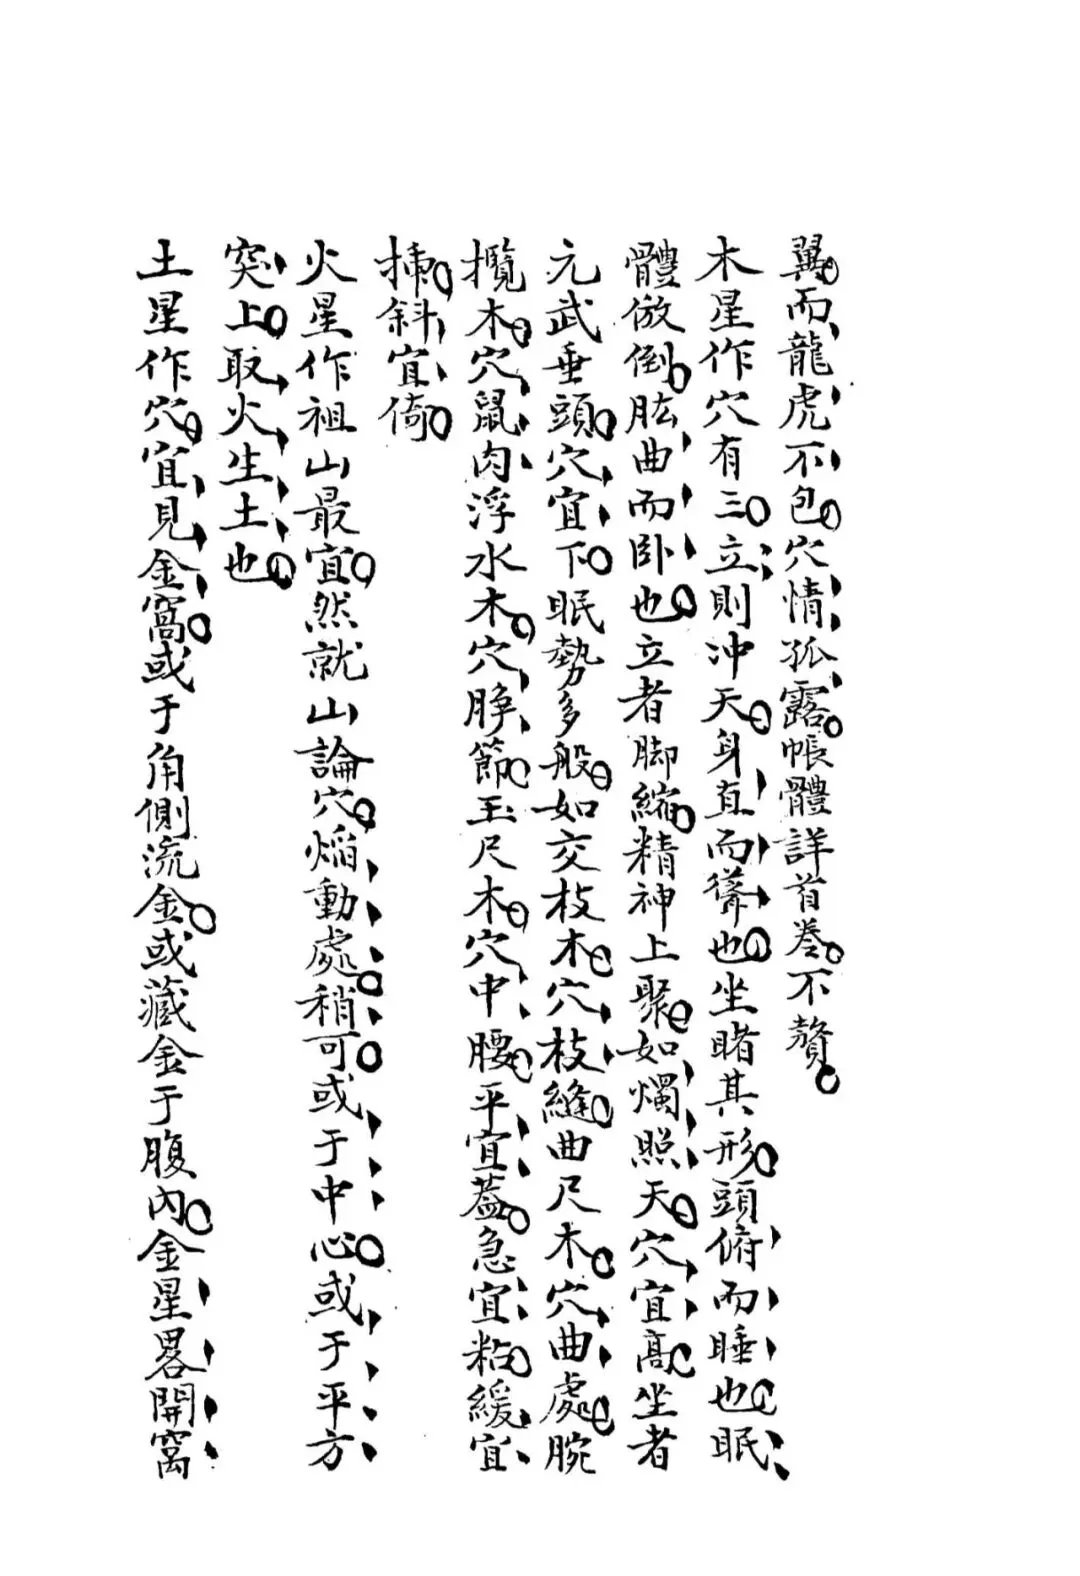 翼而龍虎不包穴情孤露帳體詳首卷不贅
木星作穴有三立則沖天身直而聳也坐睹其形頭俯而睡也眠
體倣倒肱曲而卧也立者脚縮精神上聚如燭照天穴宜高坐者
元武垂頭穴宜下眠勢多般如交枝木穴枝縫曲尺木穴曲處腕
攬木穴鼠肉浮水木穴睜節玉尺木穴中腰平宜蓋急宜粘緩宜
揷斜宜倚
火星作祖山最宜然就山論穴焰動處稍可或于中心或于平方
突上取火生土也
土星作穴宜見金窩或于角側流金或藏金于腹內金星畧開窩